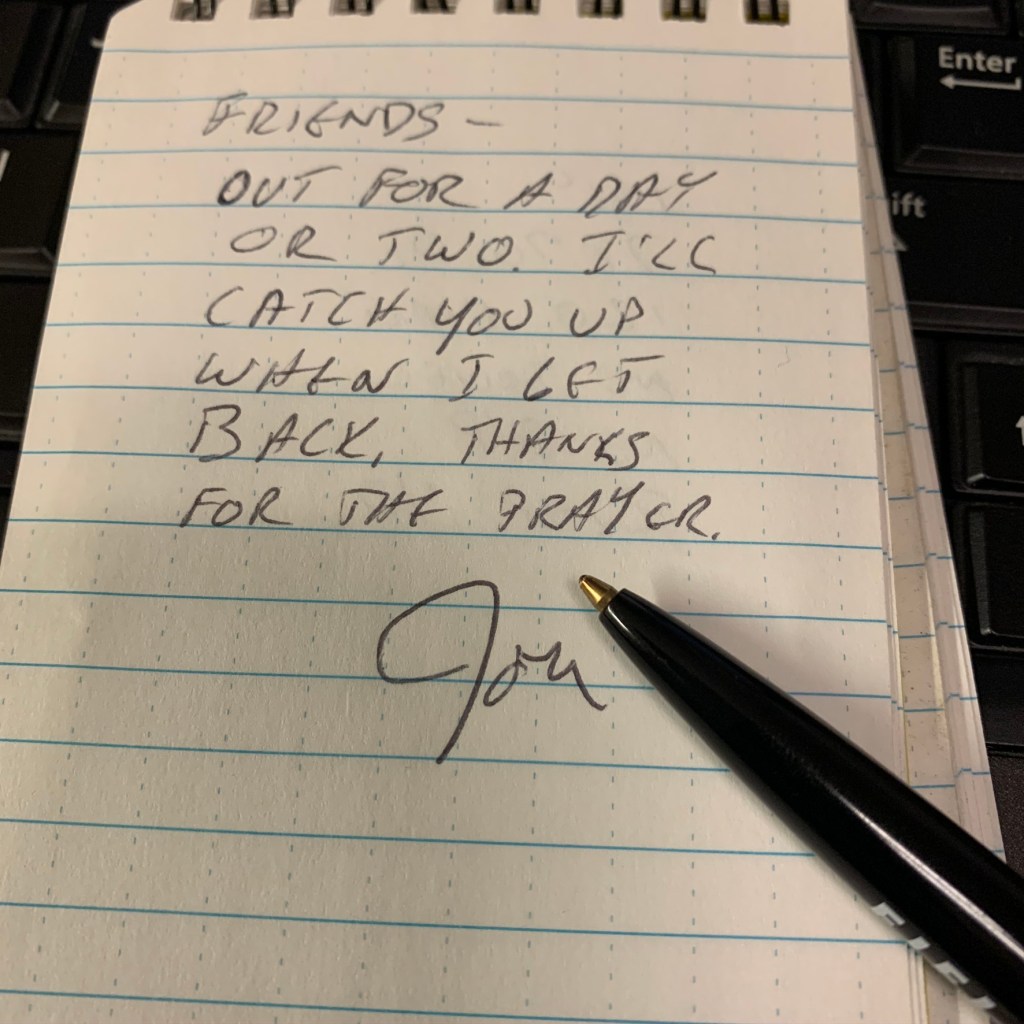 FRIENDS -
OUT FOR A DAY
OR TWO. I'LL
CATCH YOU UP
WHEN I GET
BACK, THANKS
FOR THE PRAYER.
Jon
Enter
ift